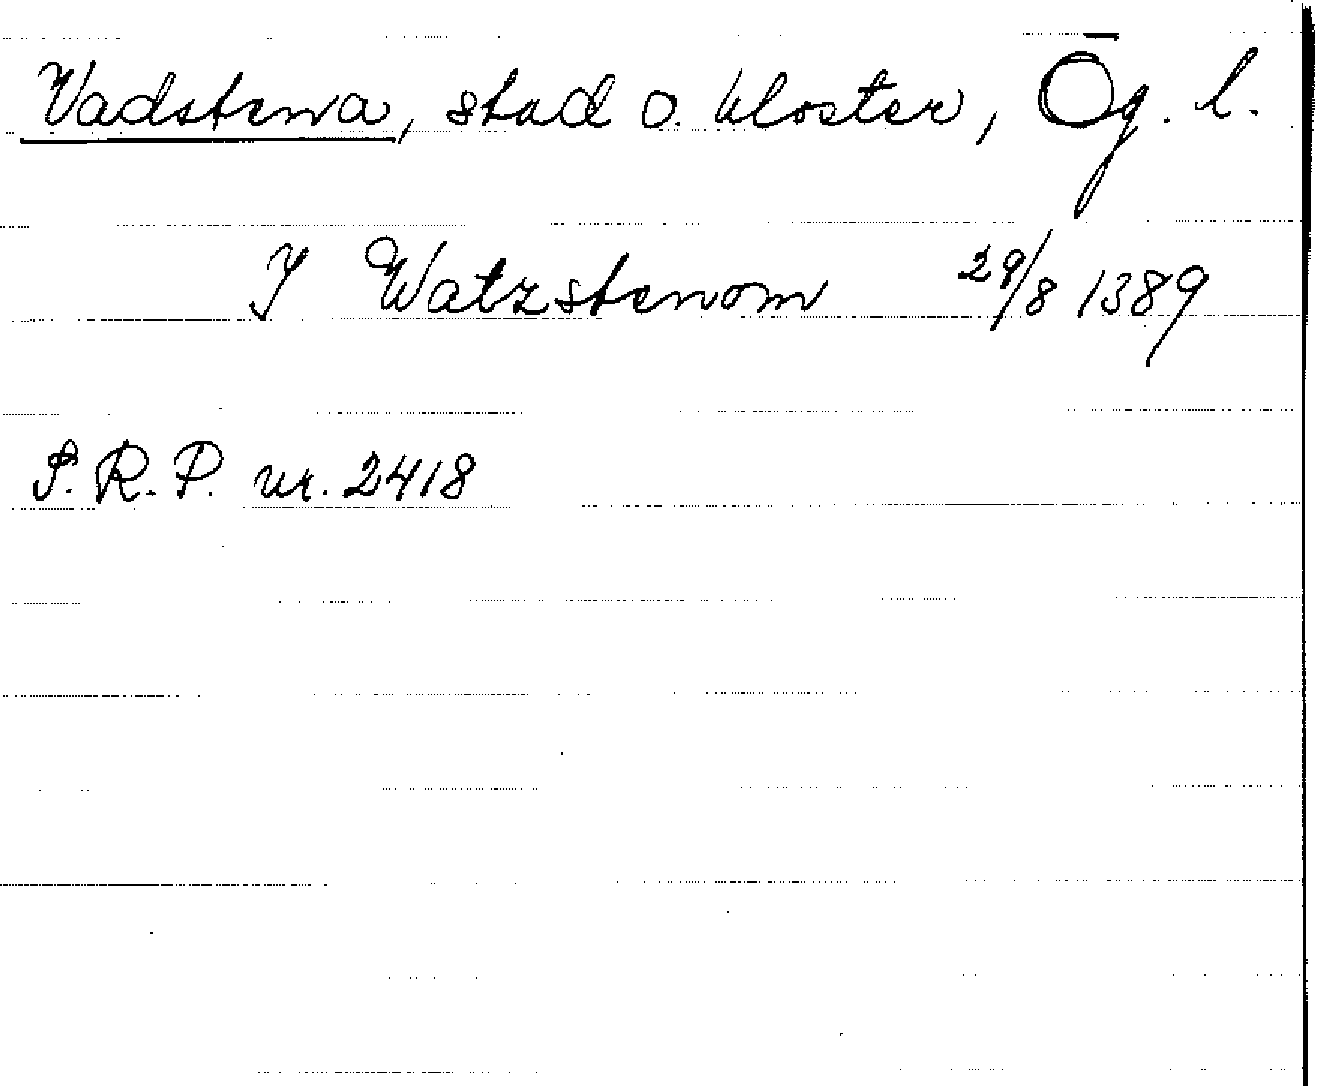 Vadstena, stad o. kloster, Ög. l.
J Watzstenom 29/8 1389
S.R.P. nr. 2418